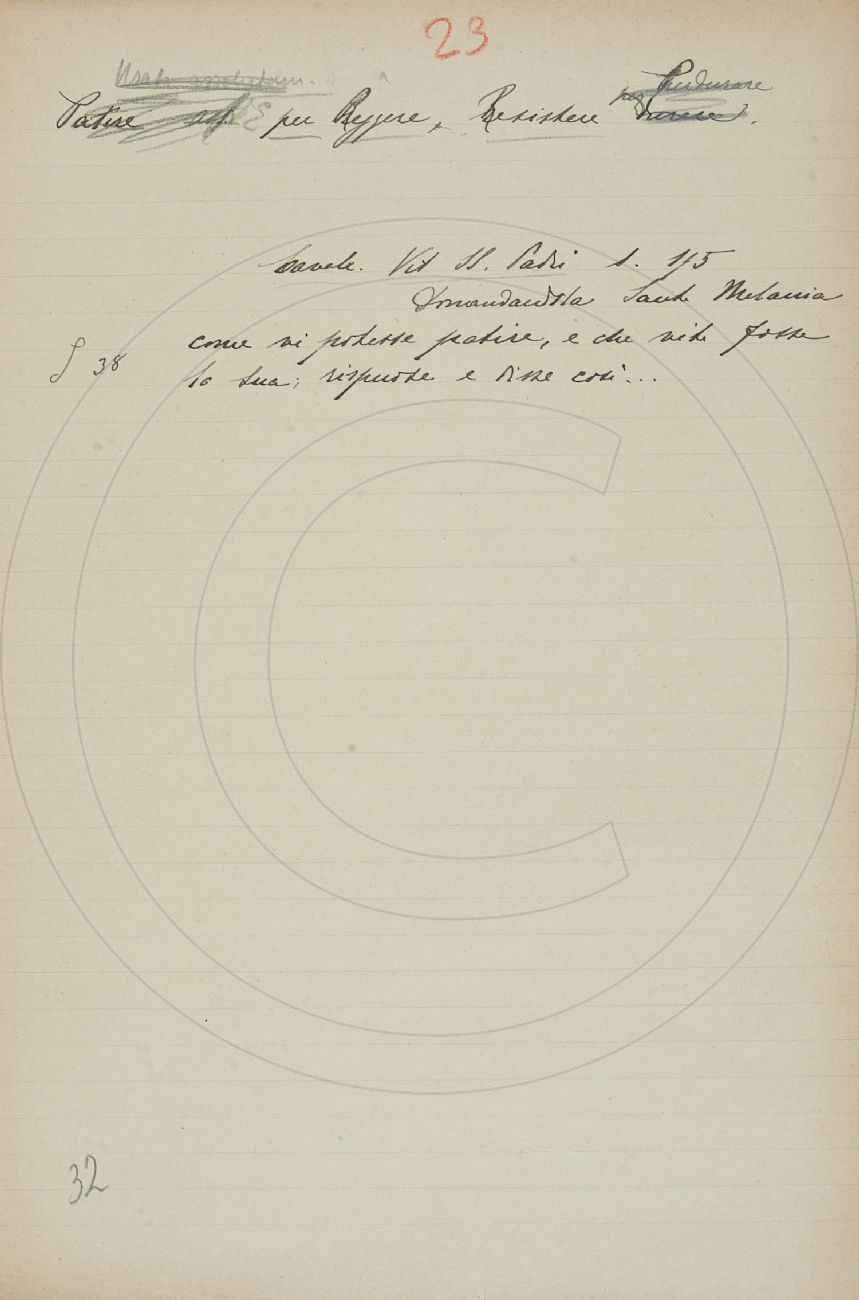 23
Patire ass. per Reggere, Resistere per Perdurare
Cavalc. Vit SS. Padri 1. 115
Domandandola Santa Melania
come vi potesse patire, e che vita fosse
§ 38
la sua; rispuose e disse così...
32